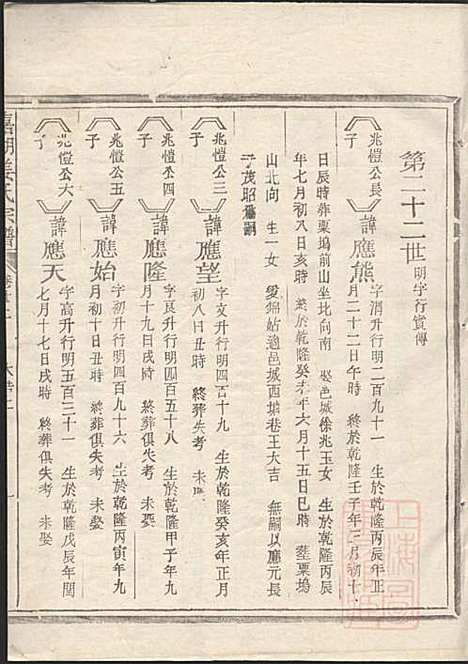 第二十二世 明字行實傳
兆愷公長子 諱應熊 字渭升行明二百九十一 生於乾隆丙辰年正
月二十二日午時 終於乾隆壬子年三月初十
日辰時葬栗塢前山坐北向南 娶邑城徐兆玉女 生於乾隆丙辰
年七月初八日亥時 終於乾隆癸 年六月十五日巳時 葬栗塢
山北向 生一女 愛錦姑適邑城西塘巷王大吉 無嗣以應元長
子茂昭 嗣
兆愷公三子 諱應望 字文升行明四百十九 生於乾隆癸亥年正月
初八日丑時 終葬失考 未娶
兆愷公四子 諱應隆 字良升行明四百五十八 生於乾隆甲子年九
月十九日戌時 終葬俱失考 未娶
兆愷公五子 諱應始 字初升行明四百九十六 生於乾隆丙寅年九
月初十日丑時 終葬俱失考 未娶
兆愷公六子 諱應天 字高升行明五百三十一 生於乾隆戊辰年閏
七月十七日戌時 終葬俱失考 未娶
姜氏宗譜